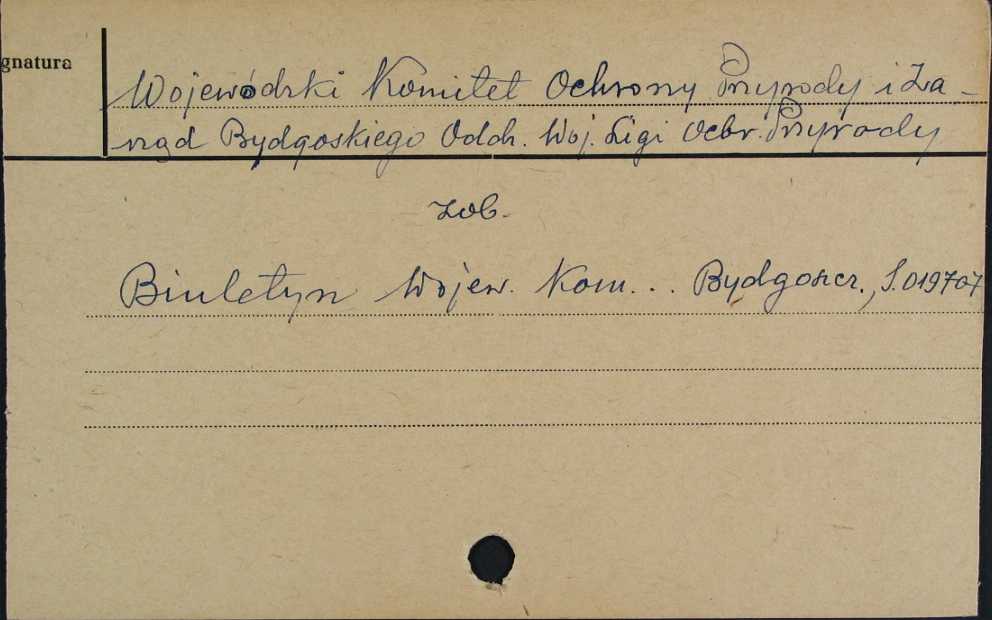 gnatura
Wojewódzki Komitet Ochrony Przyrody i Za-
rząd Bydgoskiego Oddz. Woj. Ligi Ochr. Przyrody
zob.
Biuletyn Wojew. Kom... Bydgoszcz., S.019707